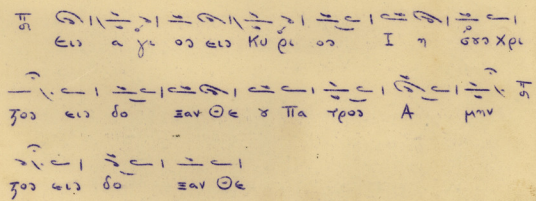 Εις α γι ος εις Κυ ρι ος Ι η σους Χρι
στος εις δο ξαν Θε ου Πα τρος Α μην
στος εις δο ξαν Θε